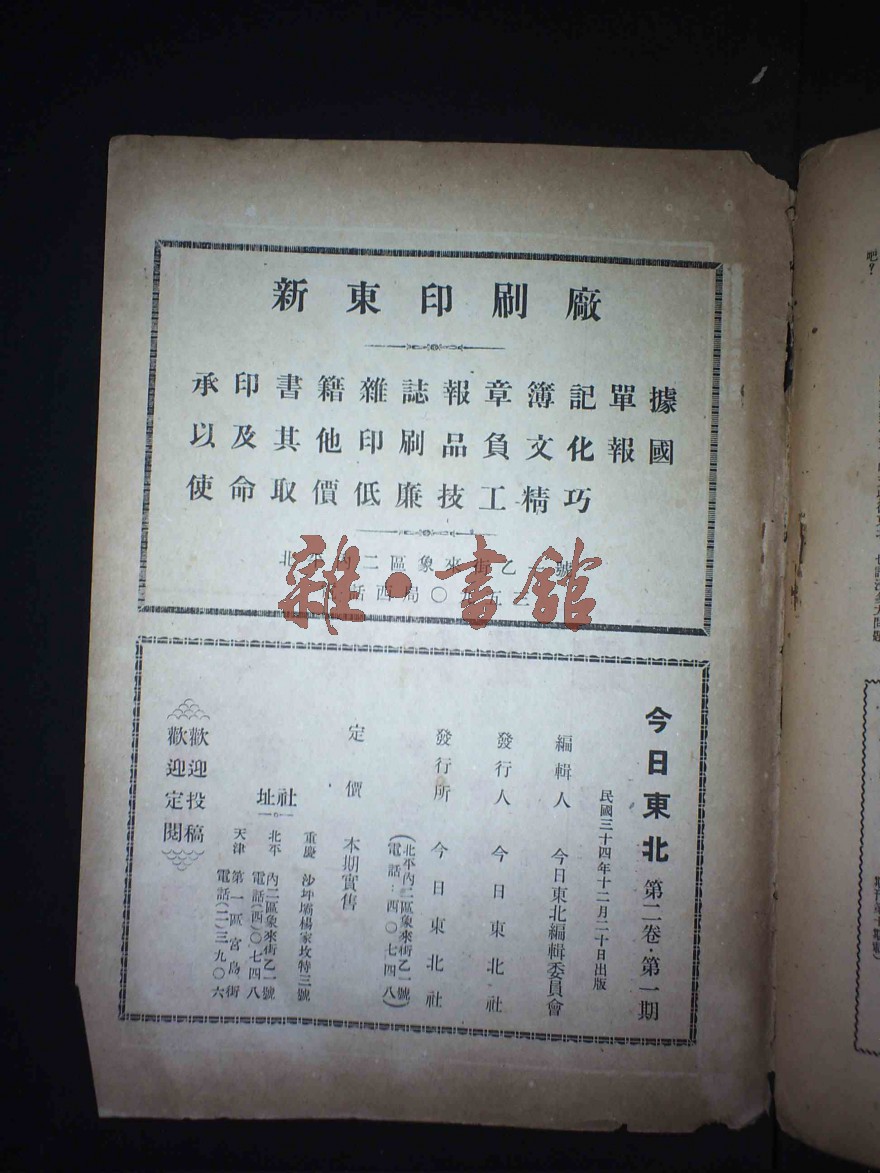 新東印刷廠
承印書籍雜誌報章簿記單據
以及其他印刷品負文化報國
使命取價低廉技工精巧
北平內二區象來街乙一號
西局〇五三
雜·書館
今日東北 第二卷·第一期
民國三十四年十二月二十日出版
編輯人 今日東北編輯委員會
發行人 今日東北社
發行所 今日東北社
(北平內二區象來街乙一號
電話：西〇七四八)
定價 本期實售
社址
重慶 沙坪壩楊家坟特三號
北平 內二區象來街乙一號
電話(西)〇七四八
天津 第一區宮島街
電話(二)三九〇六
歡迎投稿
歡迎定閱
吧？